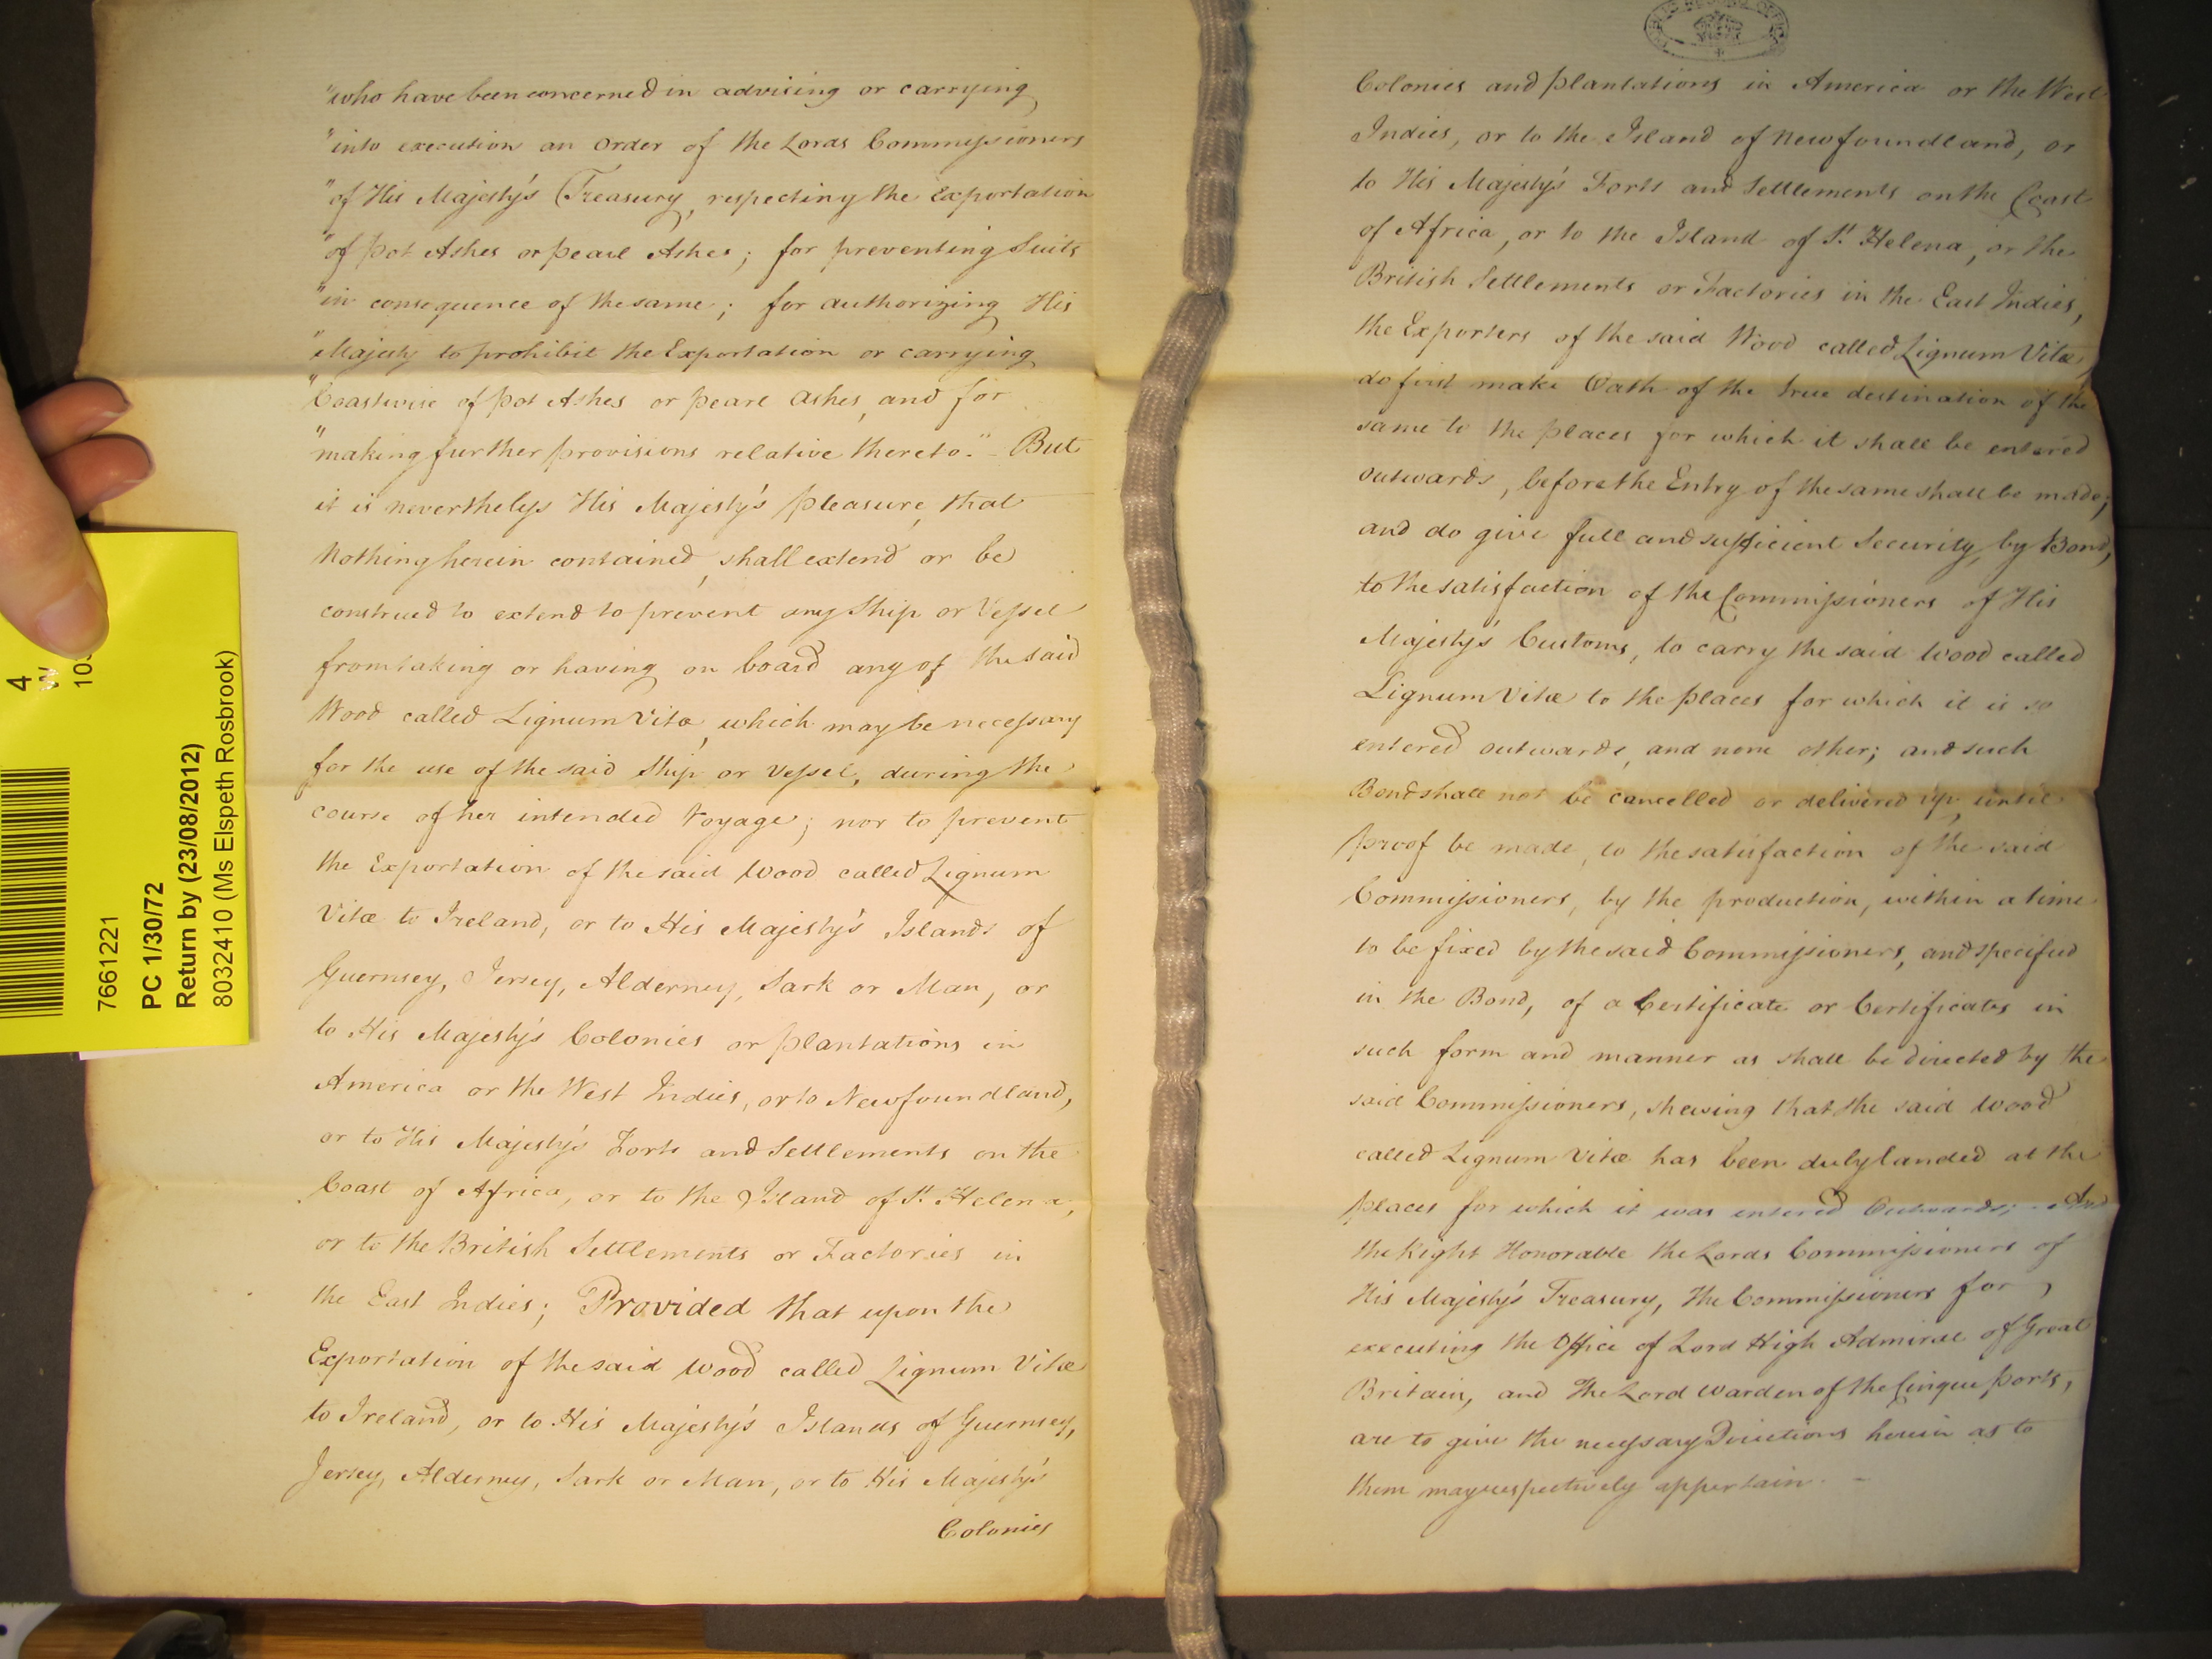 "who have been concerned in advising or carrying
"into execution an Order of the Lords Commissioners
"of His Majesty's Treasury, respecting the Exportation
"of Pot Ashes or Pearl Ashes; for preventing Suits
"in consequence of the same; for authorizing His
"Majesty to prohibit the Exportation or carrying
"Coastwise of Pot Ashes or Pearl Ashes, and for
"making further provisions relative thereto."- But
it is nevertheless His Majesty's pleasure, that
Nothing herein contained, shall extend or be
construed to extend to prevent any Ship or Vessel
from taking or having on board any of the said
Wood called Lignum Vitæ, which may be necessary
for the use of the said Ship or Vessel, during the
course of her intended Voyage; nor to prevent
the Exportation of the said Wood called Lignum
Vitæ to Ireland, or to His Majesty's Islands of
Guernsey, Jersey, Alderney, Sark or Man, or
to His Majesty's Colonies or Plantations in
America or the West Indies, or to Newfoundland,
or to His Majesty's Forts and Settlements on the
Coast of Africa, or to the Island of St. Helena,
or to the British Settlements or Factories in
the East Indies; Provided that upon the
Exportation of the said Wood called Lignum Vitæ
to Ireland, or to His Majesty's Islands of Guernsey,
Jersey, Alderney, Sark or Man, or to His Majesty's
Colonies
Colonies and Plantations in America or the West
Indies, or to the Island of Newfoundland, or
to His Majesty's Forts and Settlements on the Coast
of Africa, or to the Island of St. Helena, or the
British Settlements or Factories in the East Indies,
the Exporters of the said Wood called Lignum Vitæ,
do first make Oath of the true destination of the
same to the places for which it shall be entered
outwards, before the Entry of the same shall be made;
and do give full and sufficient Security, by Bond,
to the satisfaction of the Commissioners of His
Majesty's Customs, to carry the said Wood called
Lignum Vitæ to the places for which it is so
entered outwards, and none other; and such
Bond shall not be cancelled or delivered up, until
proof be made, to the satisfaction of the said
Commissioners, by the production, within a time
to be fixed by the said Commissioners, and specified
in the Bond, of a Certificate or Certificates in
such form and manner as shall be directed by the
said Commissioners, shewing that the said Wood
called Lignum Vitæ has been duly landed at the
places for which it was entered Outwards;- And
the Right Honorable the Lords Commissioners of
His Majesty's Treasury, the Commissioners for
executing the Office of Lord High Admiral of Great
Britain, and the Lord Warden of the Cinque Ports,
are to give the necessary Directions herein as to
them may respectively appertain -
PUBLIC RECORD OFFICE
4
W
7661221
PC 1/30/72
Return by (23/08/2012)
8032410 (Ms Elspeth Rosbrook)